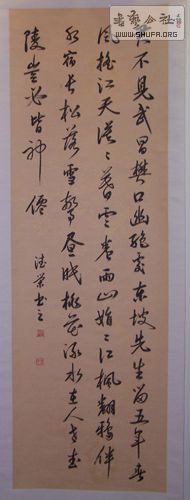 君不見武昌樊口幽絕處東坡先生留五年春
風搖江天漠〻暮雲卷雨山娟〻江楓翻鴉伴
水宿長松落雪驚晝眠桃花流水在人世武
陵豈必皆神僊
德榮書之
www.SHUFA.com